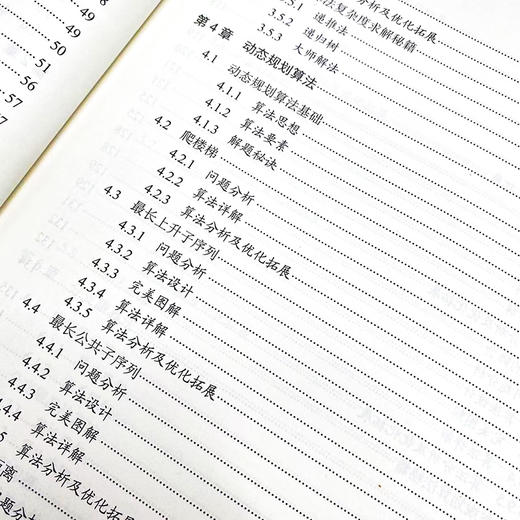 48
49
49
50
51
56
57
57
分析及优化拓展
法复杂度求解秘籍
3.5.1 递推法
3.5.2 递归树
3.5.3 大师解法
第 4 章 动态规划算法
4.1 动态规划算法基础
4.1.1 算法思想
4.1.2 算法要素
4.1.3 解题秘诀
4.2 爬楼梯
4.2.1 问题分析
4.2.2 算法详解
4.2.3 算法分析及优化拓展
4.3 最长上升子序列
4.3.1 问题分析
4.3.2 算法设计
4.3.3 完美图解
4.3.4 算法详解
4.3.5 算法分析及优化拓展
4.4 最长公共子序列
4.4.1 问题分析
4.4.2 算法设计
4.4.3 完美图解
4.4.4 算法详解
5 算法分析及优化拓展
离
题分析